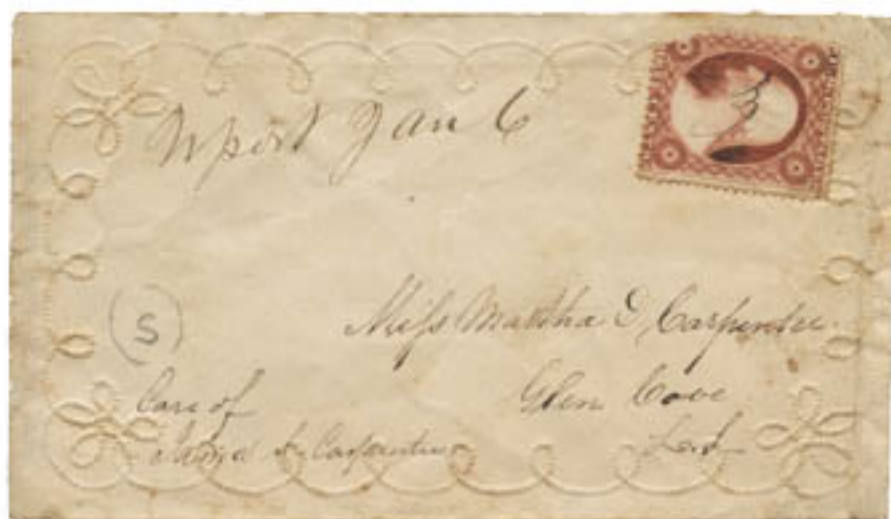 Wport Jan 6
S
Miss Martha Carpenter
Glen Cove
Care of
Carpenter